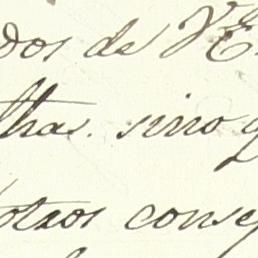 dos de V.E.
thas. sino q
otros conse